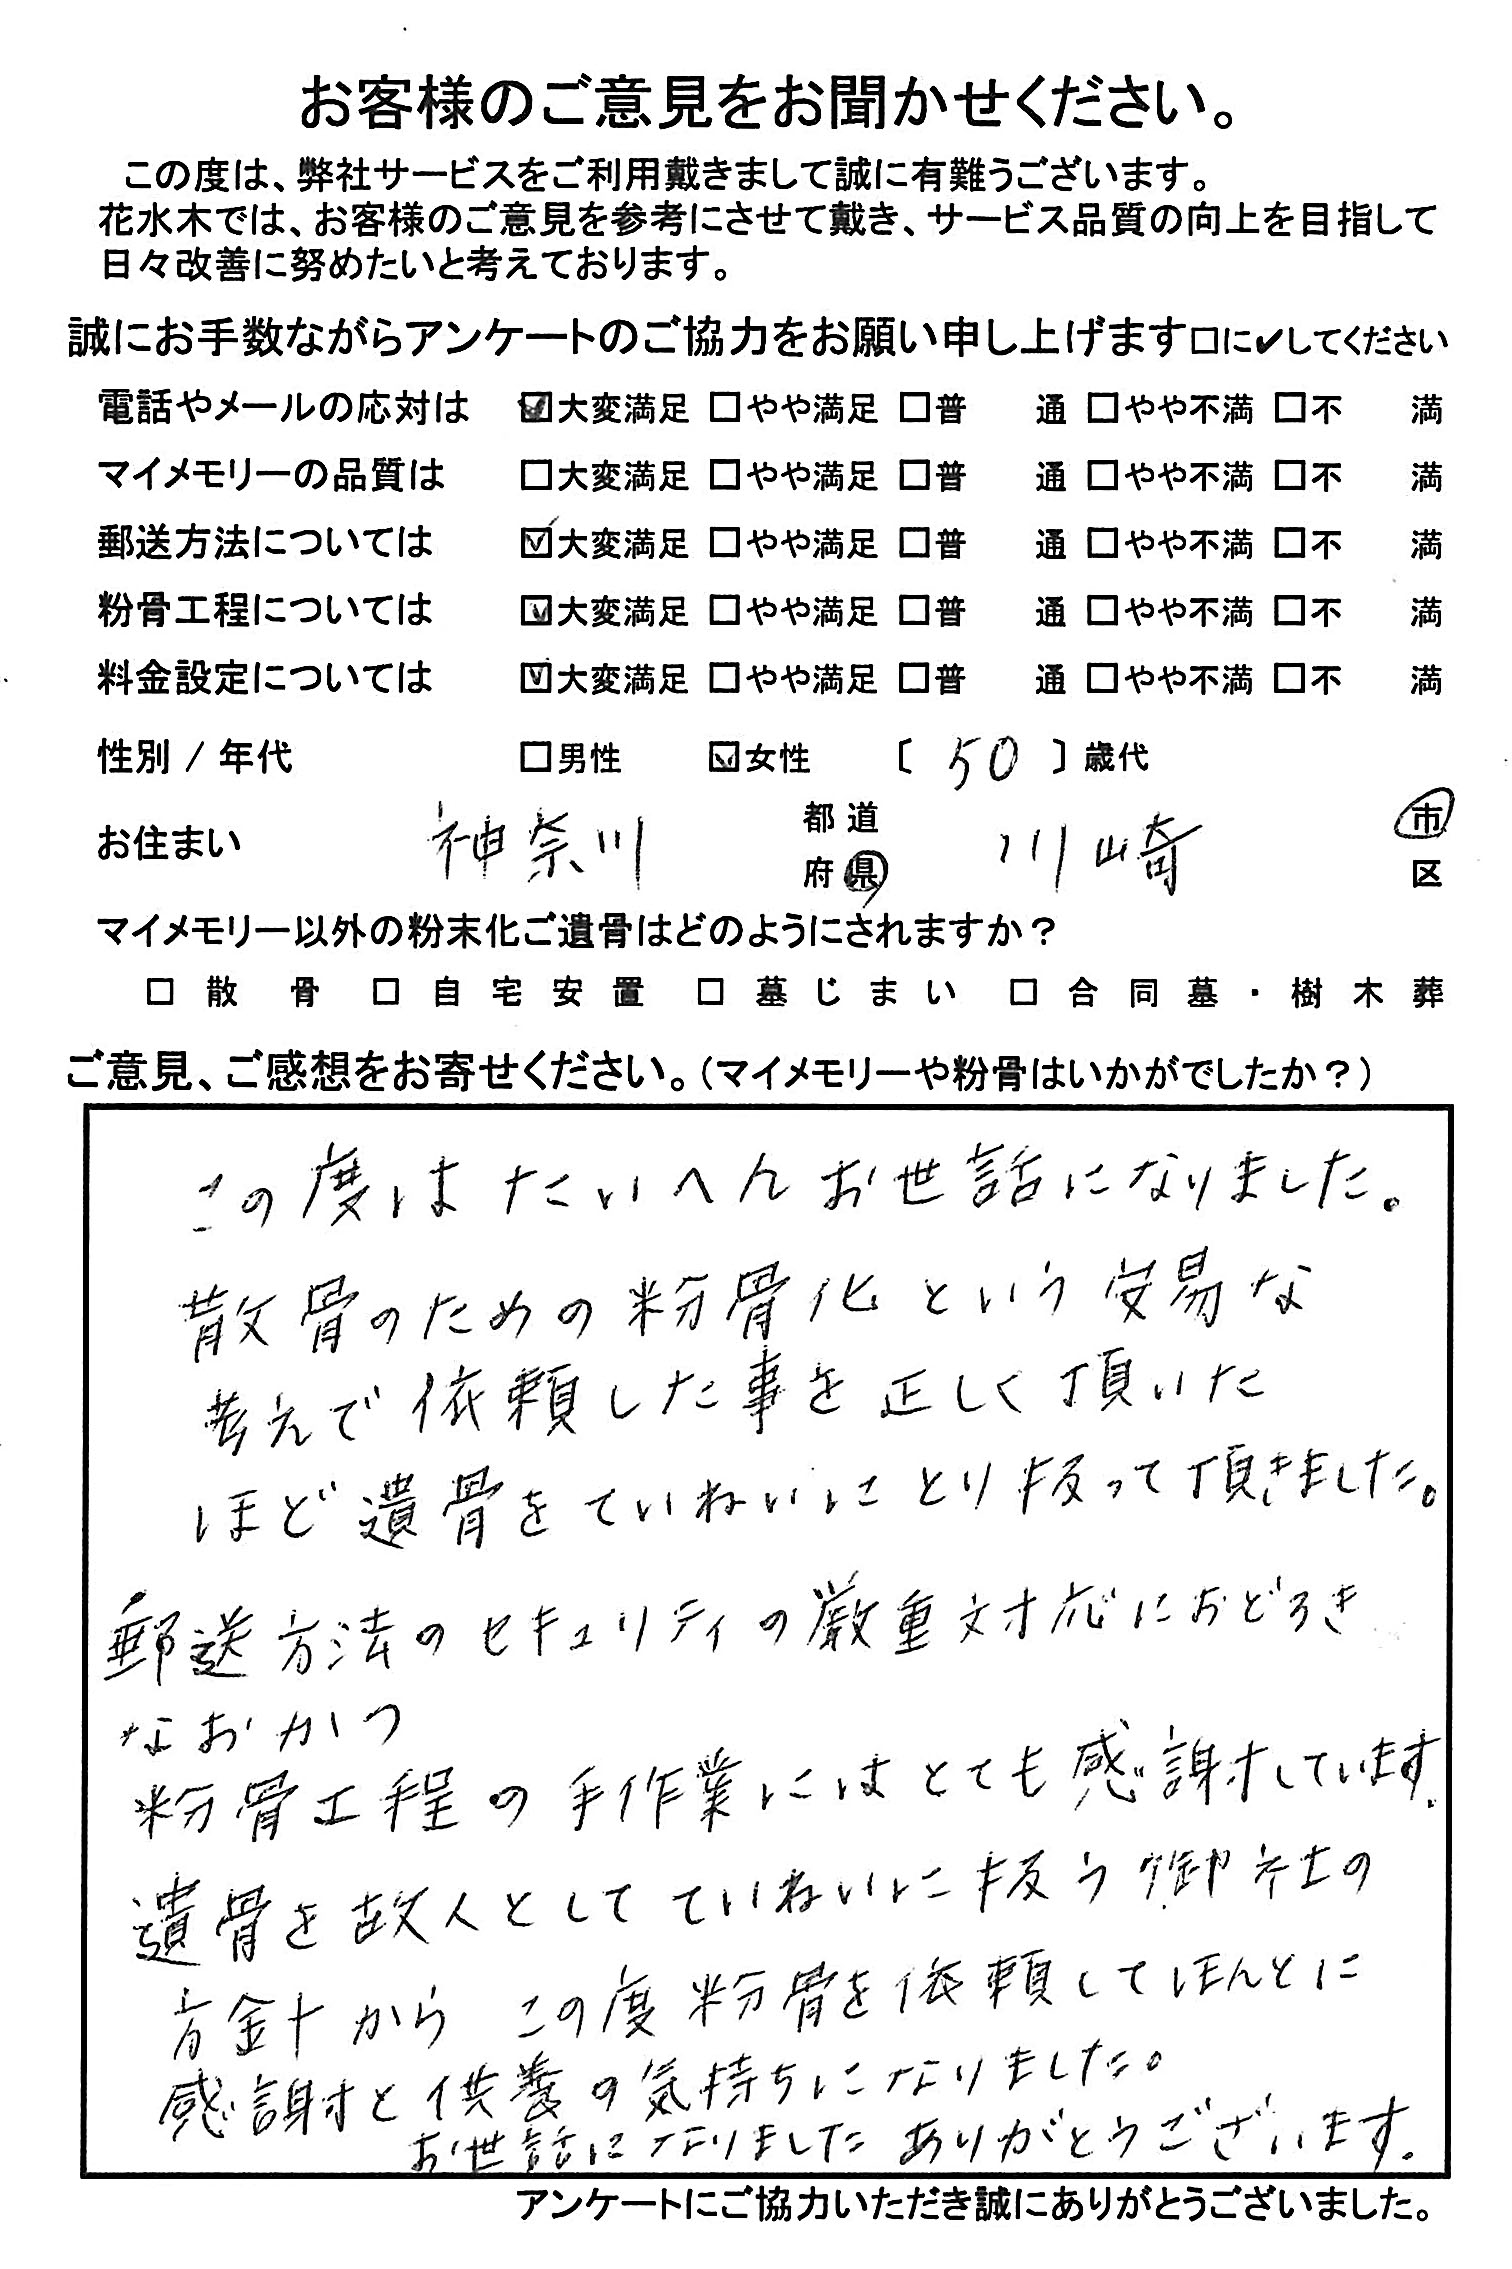 お客様のご意見をお聞かせください。
この度は、弊社サービスをご利用戴きまして誠に有難うございます。
花水木では、お客様のご意見を参考にさせて戴き、サービス品質の向上を目指して
日々改善に努めたいと考えております。
誠にお手数ながらアンケートのご協力をお願い申し上げます□に✔してください
電話やメールの応対は ☑大変満足 □やや満足 □普 通 □やや不満 □不 満
マイメモリーの品質は □大変満足 □やや満足 □普 通 □やや不満 □不 満
郵送方法については ☑大変満足 □やや満足 □普 通 □やや不満 □不 満
粉骨工程については ☑大変満足 □やや満足 □普 通 □やや不満 □不 満
料金設定については ☑大変満足 □やや満足 □普 通 □やや不満 □不 満
性別 / 年代 □男性 ☑女性 〔 50 〕歳代
お住まい 神奈川 都道府県 川崎 市区
マイメモリー以外の粉末化ご遺骨はどのようにされますか？
□ 散骨 □ 自宅安置 □ 墓じまい □ 合同墓・樹木葬
ご意見、ご感想をお寄せください。（マイメモリーや粉骨はいかがでしたか？）
この度はたいへんお世話になりました。
散骨のための粉骨化という安易な
考えで依頼した事を正しく頂いた
ほど遺骨をていねいにとり扱って頂きました。
郵送方法のセキュリティの厳重対応におどろき
なおかつ
粉骨工程の手作業にはとても感謝しています.
遺骨を故人としてていねいに扱う御社の
方針から この度粉骨を依頼してほんとに
感謝と供養の気持ちになりました。
お世話になりました ありがとうございます.
アンケートにご協力いただき誠にありがとうございました。